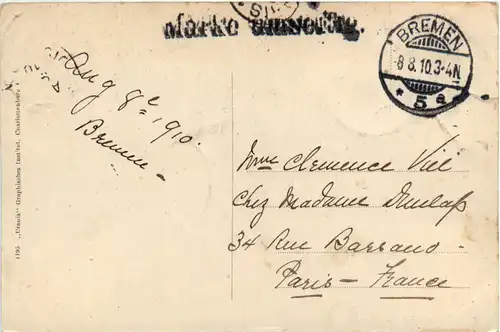 Marke einseitig.
BREMEN
-8 8.10.3-4N.
* 5 a *
Aug 8e, 1910.
Bremen -
Mme Clemence Viel
chez Madame Dunlass
34 Rue Bassano -
Paris - France
1195 "Urania" Graphisches Institut, Charlottenburg